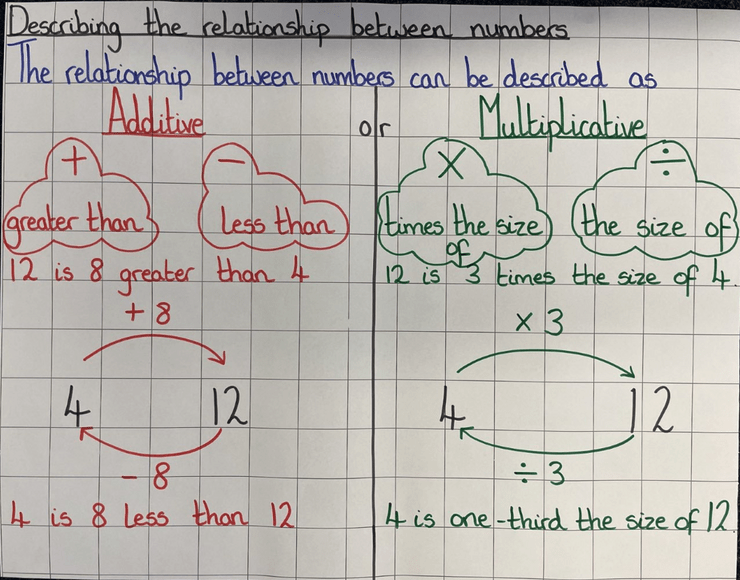 Describing the relationship between numbers
The relationship between numbers can be described as
Additive or Multiplicative
+ − × ÷
greater than less than times the size of the size of
12 is 8 greater than 4
12 is 3 times the size of 4.
+ 8
× 3
4 12
4 12
− 8
÷ 3
4 is 8 less than 12
4 is one-third the size of 12